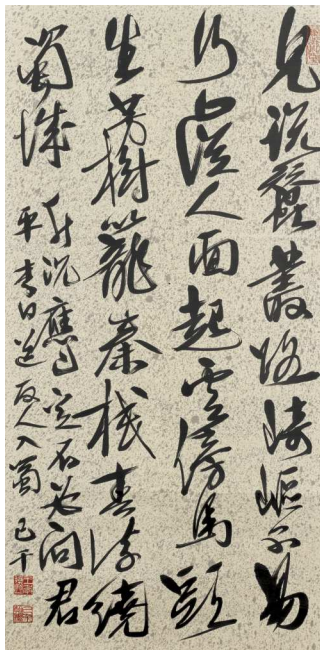 見說蠶叢路崎嶇不易
行山從人面起雲傍馬頭
生芳樹籠秦棧春流繞
蜀城升沉應已定不必问君
平李白送友人入蜀